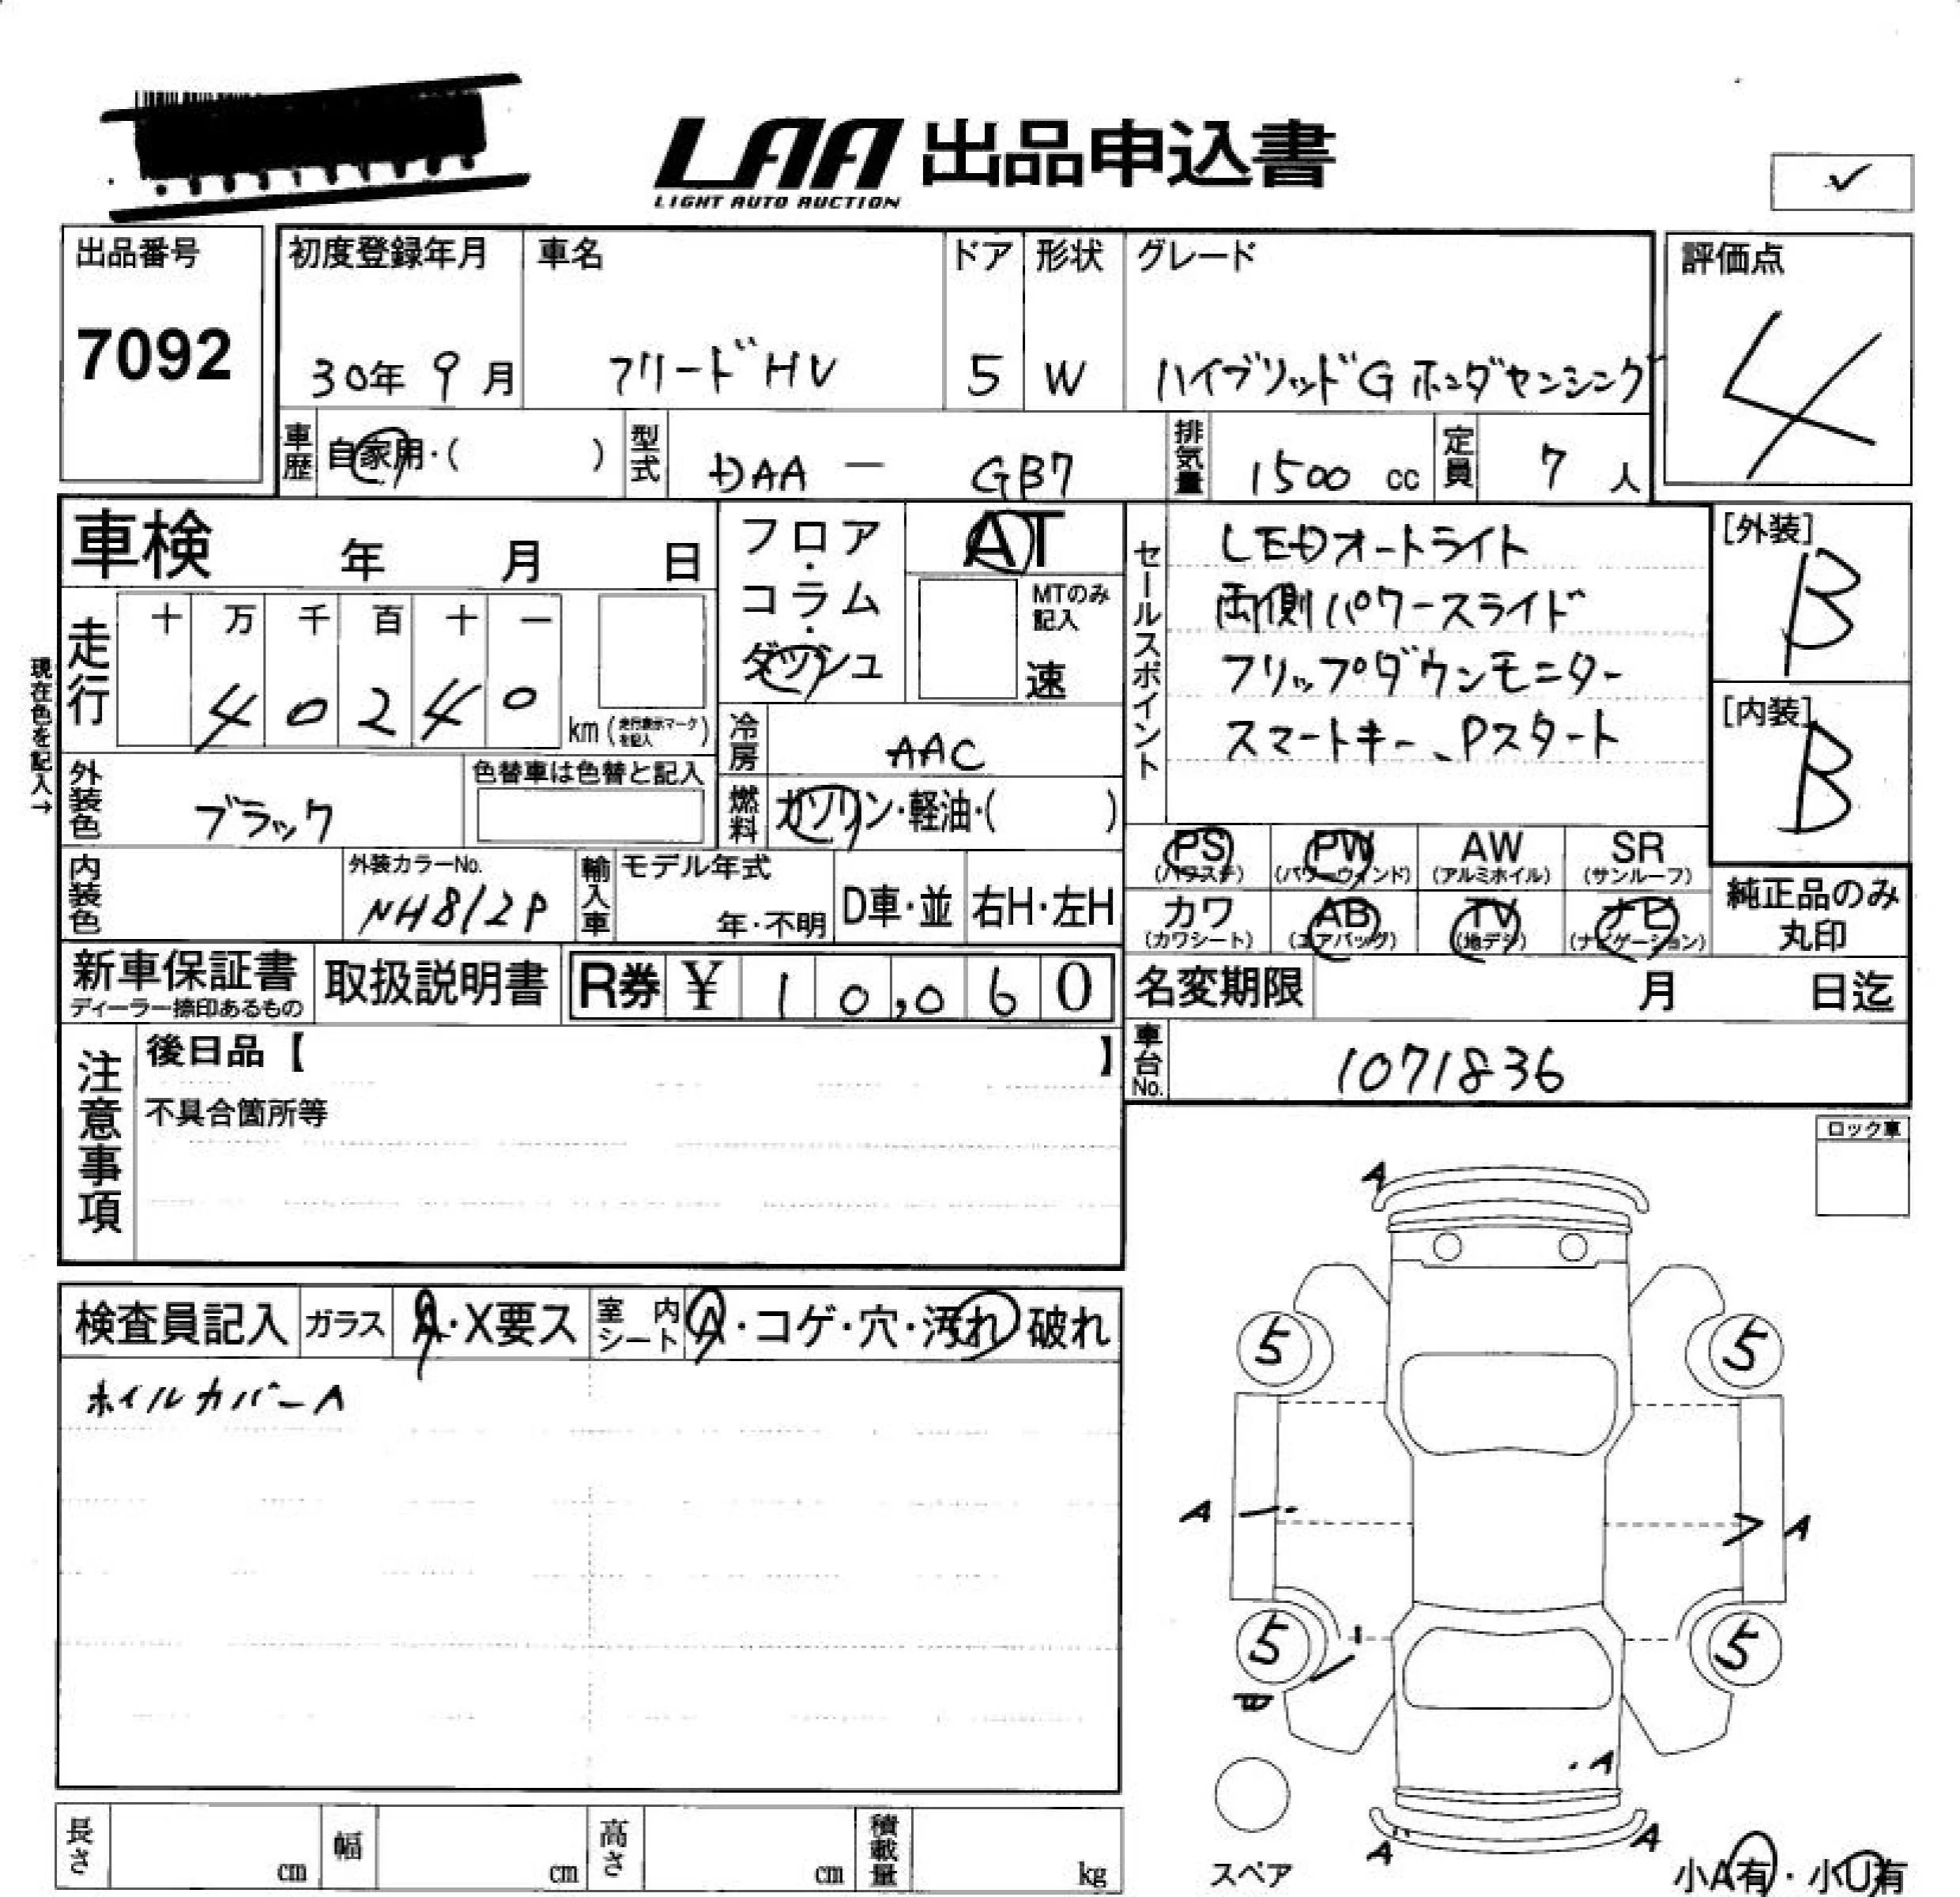 LAA 出品申込書
LIGHT AUTO AUCTION
✓
出品番号
7092
初度登録年月
30年 9月
車名
フリードHV
ドア
5
形状
W
グレード
ハイブリッドG ホンダセンシング
評価点
4
車歴
自家用・( )
型式
DAA － GB7
排気量
1500 cc
定員
7 人
車検 年 月 日
現在色を記入→
走行
十 万 千 百 十 一
4 0 2 4 0
km (走行表示マークを記入)
フロア・コラム・ダッシュ
AT
MTのみ記入
速
冷房
AAC
燃料
ガソリン・軽油・( )
外装色
ブラック
色替車は色替と記入
内装色
外装カラーNo.
NH812P
輸入車
モデル年式
年・不明
D車・並
右H・左H
セールスポイント
LEDオートライト
両側パワースライド
フリップダウンモニター
スマートキー、Pスタート
[外装]
B
[内装]
B
PS (パワステ)
PW (パワーウィンド)
AW (アルミホイル)
SR (サンルーフ)
カワ (カワシート)
AB (エアバッグ)
TV (地デジ)
ナビ (ナビゲーション)
純正品のみ
丸印
新車保証書
ディーラー捺印あるもの
取扱説明書
R券 ¥ 10,060
名変期限 月 日迄
車台No.
1071836
注意事項
後日品【 】
不具合箇所等
ロック車
検査員記入
ガラス
A・X要ス
室内シート
A・コゲ・穴・汚れ 破れ
ホイルカバーA
A
5
5
A
A
5
5
W
A
A
A
スペア
小A有・小U有
長さ cm
幅 cm
高さ cm
積載量 kg